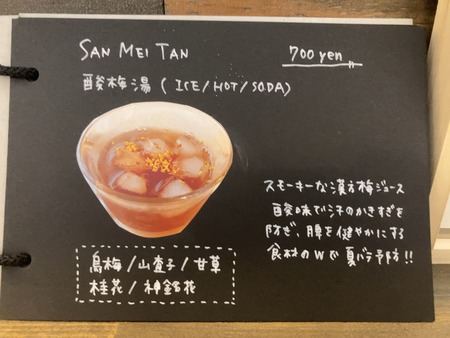 SAN MEI TAN
700 yen
酸梅湯 (ICE/HOT/SODA)
スモーキーな漢方梅ジュース
酸味で汗のかきすぎを
防ぎ、脾を健やかにする
食材のWで夏バテ予防!!
烏梅/山査子/甘草
桂花/神麹花